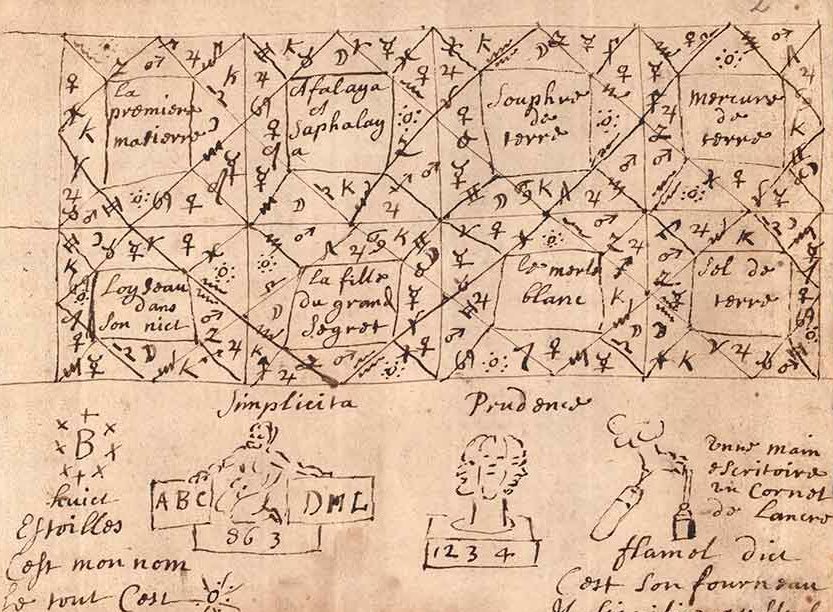 2
La
premiere
matierre
Afalaya
et
Saphalay
a
Souphre
de
terre
mercure
de
terre
Loyseau
dans
son nict
la fille
du grand
Segret
le merle
blanc
Sel de
terre
Simplicita
Prudence
B
huict
Estoilles
C'est mon nom
le tout C'est
A B C
D M L
8 6 3
1 2 3 4
vnne main
escritoire
un Cornet
de Lancre
flamel dict
C'est Son fourneau